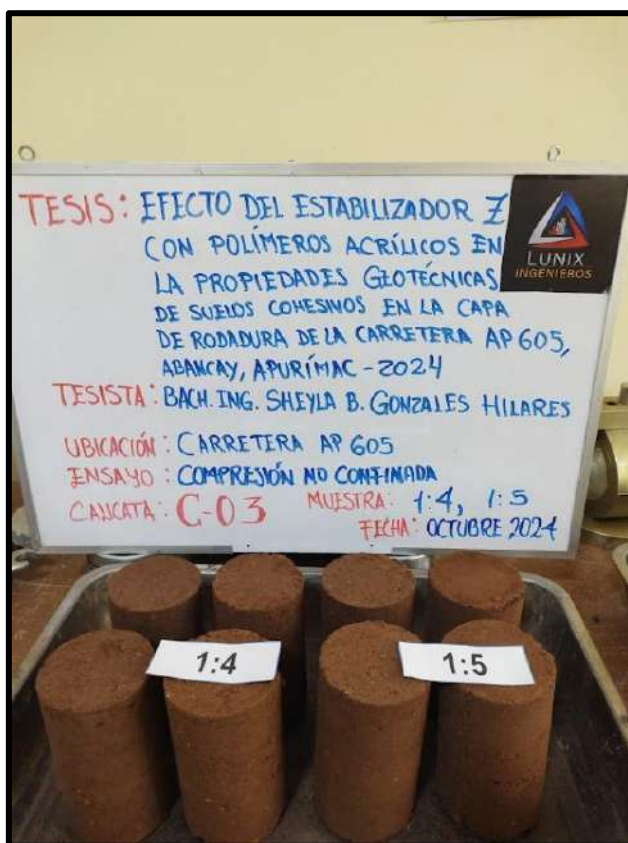 TESIS: EFECTO DEL ESTABILIZADOR Z
CON POLÍMEROS ACRÍLICOS EN
LA PROPIEDADES GEOTÉCNICAS
DE SUELOS COHESIVOS EN LA CAPA
DE RODADURA DE LA CARRETERA AP 605,
ABANCAY, APURÍMAC - 2024
TESISTA: BACH. ING. SHEYLA B. GONZALES HILARES
UBICACIÓN: CARRETERA AP 605
ENSAYO: COMPRESIÓN NO CONFINADA
CALICATA: C-03 MUESTRA: 1:4, 1:5
FECHA: OCTUBRE 2024
LUNIX
INGENIEROS
1:4
1:5